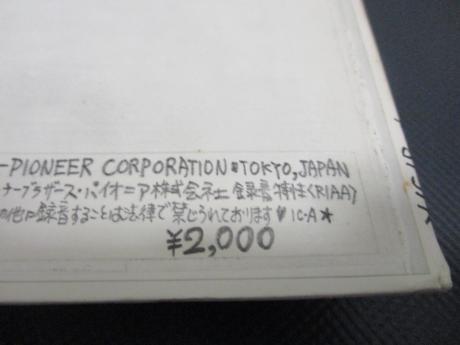 -PIONEER CORPORATION■TOKYO, JAPAN
ナーブラザース・パイオニア株式会社 録音特性〈RIAA〉
の他に録音することは法律で禁じられております
¥2,000